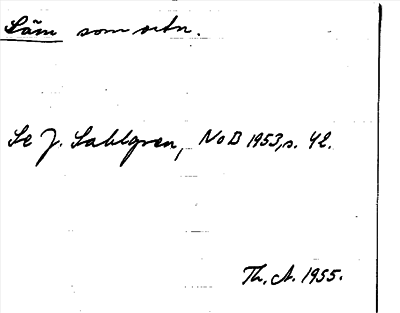 Säm som ortn.
Se J. Sahlgren, NoB 1953, s. 42.
Th. A. 1955.